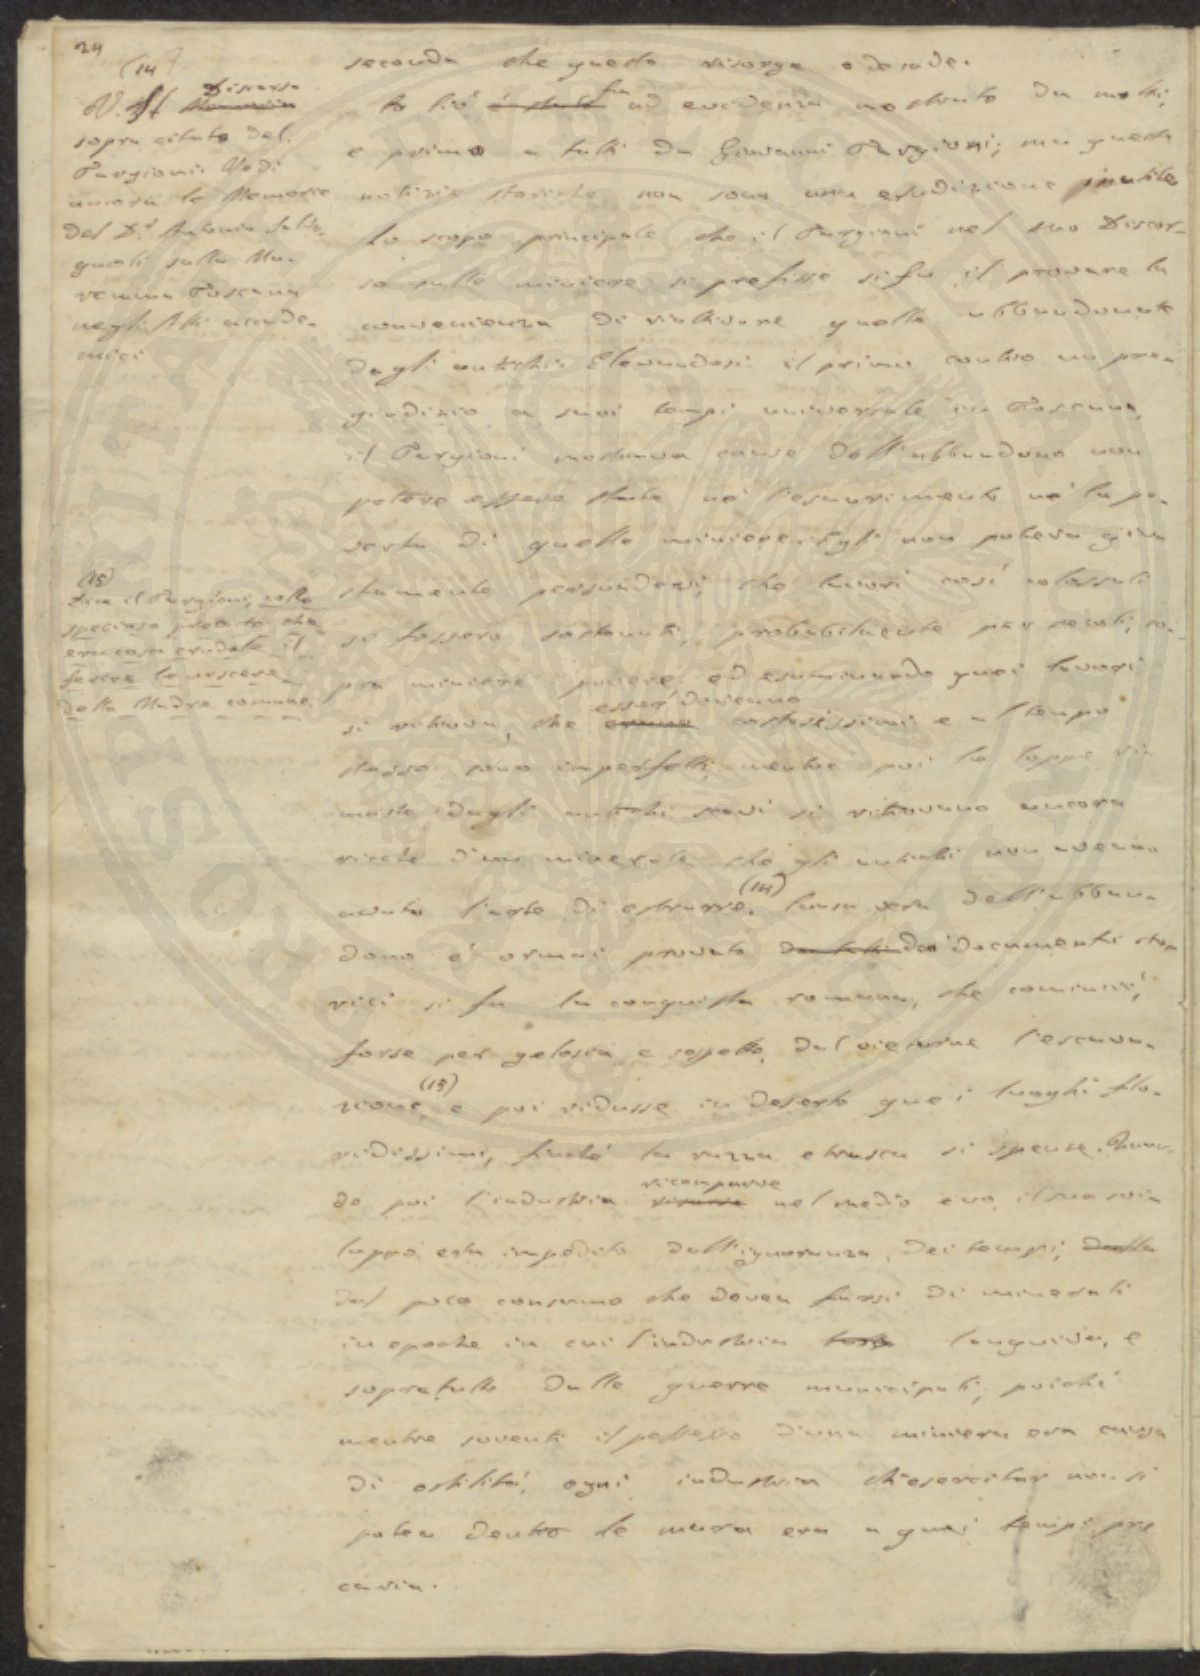 24
seconda che questo risorge o decade.
(14)
V. Discorso
sopra citato del
Targioni. Vedi
ancora le Memorie
del Dr. Antonio Salva-
gnoli sulla Ma-
remma Toscana
negli Atti accade-
mici
(15)
Dice il Targioni, colla
specioso pretesto che
era cosa crudele il
ferire le viscere
della Madre comune.
to ciò è stato fu ad evidenza mostrato da molti,
e primo a tutti da Giovanni Targioni; ma queste
notizie storiche non sono una erudizione inutile
Lo scopo principale che il Targioni nel suo Discor-
so sulle miniere si prefisse si fu il provare la
convenienza di riattivare quelle abbandonate
dagli antichi. Elevandosi il primo contro un pre-
giudizio a suoi tempi universale in Toscana,
il Targioni mostrava cause dell'abbandono non
potere essere state nè l'esaurimento nè la po-
vertà di quelle miniere. Egli non poteva giu-
stamente persuadersi, che lavori così colossali
si fossero sostenuti, probabilmente per secoli, so-
pra miniere povere, ed esaminando quei lavori
si ritrova, che esser dovevano costosissimi e al tempo
stesso sono imperfetti, mentre poi le loppe ri-
maste dagli antichi scavi si ritrovano ancora
ricche d'un minerale che gli antichi non aveano
avuto l'arte di estrarre. (14) Causa vera dell'abban-
dono è ormai provato da tutti dai documenti sto-
rici si fu la conquista romana, che cominciò,
forse per gelosia e sospetto, dal vietarne l'escava-
zione, (15) e poi ridusse in deserto quei luoghi flo-
ridissimi, finchè la razza etrusca si spense. Quan-
do poi l'industria ricomparve nel medio evo, il suo svi-
luppo era impedito dall'ignoranza dei tempi, dalla
dal poco consumo che dovea farsi di minerali
in epoche in cui l'industria languiva, e
sopratutto dalle guerre municipali, poichè
mentre soventi il possesso d'una miniera era causa
di ostilità, ogni industria ch'esercitar non si
potea dentro le mura era a quei tempi pre
caria.